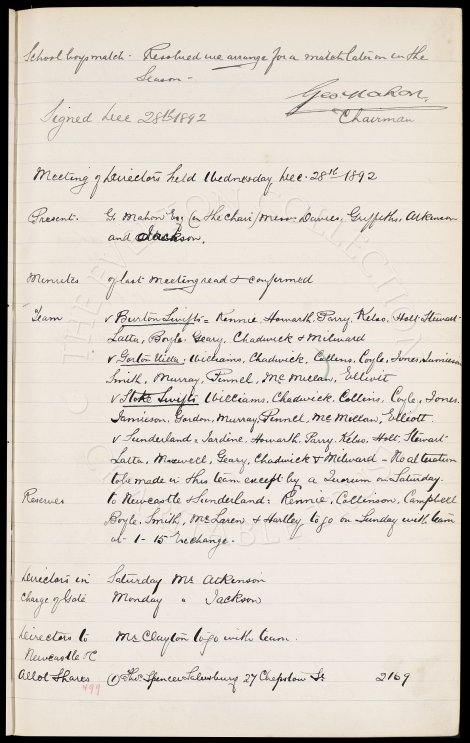 School boys match - Resolved we arrange for a match later on in the
Season -
Geo Mahon.
Chairman
Signed Dec 28th 1892
Meeting of Directors held Wednesday Dec. 28th 1892
Present. G. Mahon Esq (in the chair) Messrs Davies, Griffiths, Atkinson
and Jackson.
Minutes of last meeting read & confirmed
Team v Burton Swifts = Rennie, Howarth, Parry, Kelso, Holt - Stewart -
Latta, Boyle, Geary, Chadwick & Milward
v Gorton Villa: Williams, Chadwick, Collins, Coyle, Jones, Jamieson
Smith, Murray, Pinnel, McMillan, Elliott
v Stoke Swifts Williams, Chadwick, Collins, Coyle, Jones.
Jamieson, Gordon, Murray, Pinnel, McMillan, Elliott.
v Sunderland = Jardine, Howarth, Parry, Kelso, Holt, Stewart -
Latta, Maxwell, Geary, Chadwick & Milward - No alteration
to be made in this team except by a Quorum on Saturday.
Reserves to Newcastle & Sunderland: Rennie, Collinson, Campbell
Boyle, Smith, McLaren & Hartley to go on Sunday with team
at 1-15 Exchange.
Directors in Saturday Mr Atkinson
Charge of Gate Monday " Jackson
Directors to Mr Clayton to go with team.
Newcastle &c
Allot Shares (1) Thos Spencer Salusbury 27 Chepstow St 2169
499
THE EVERTON COLLECTION